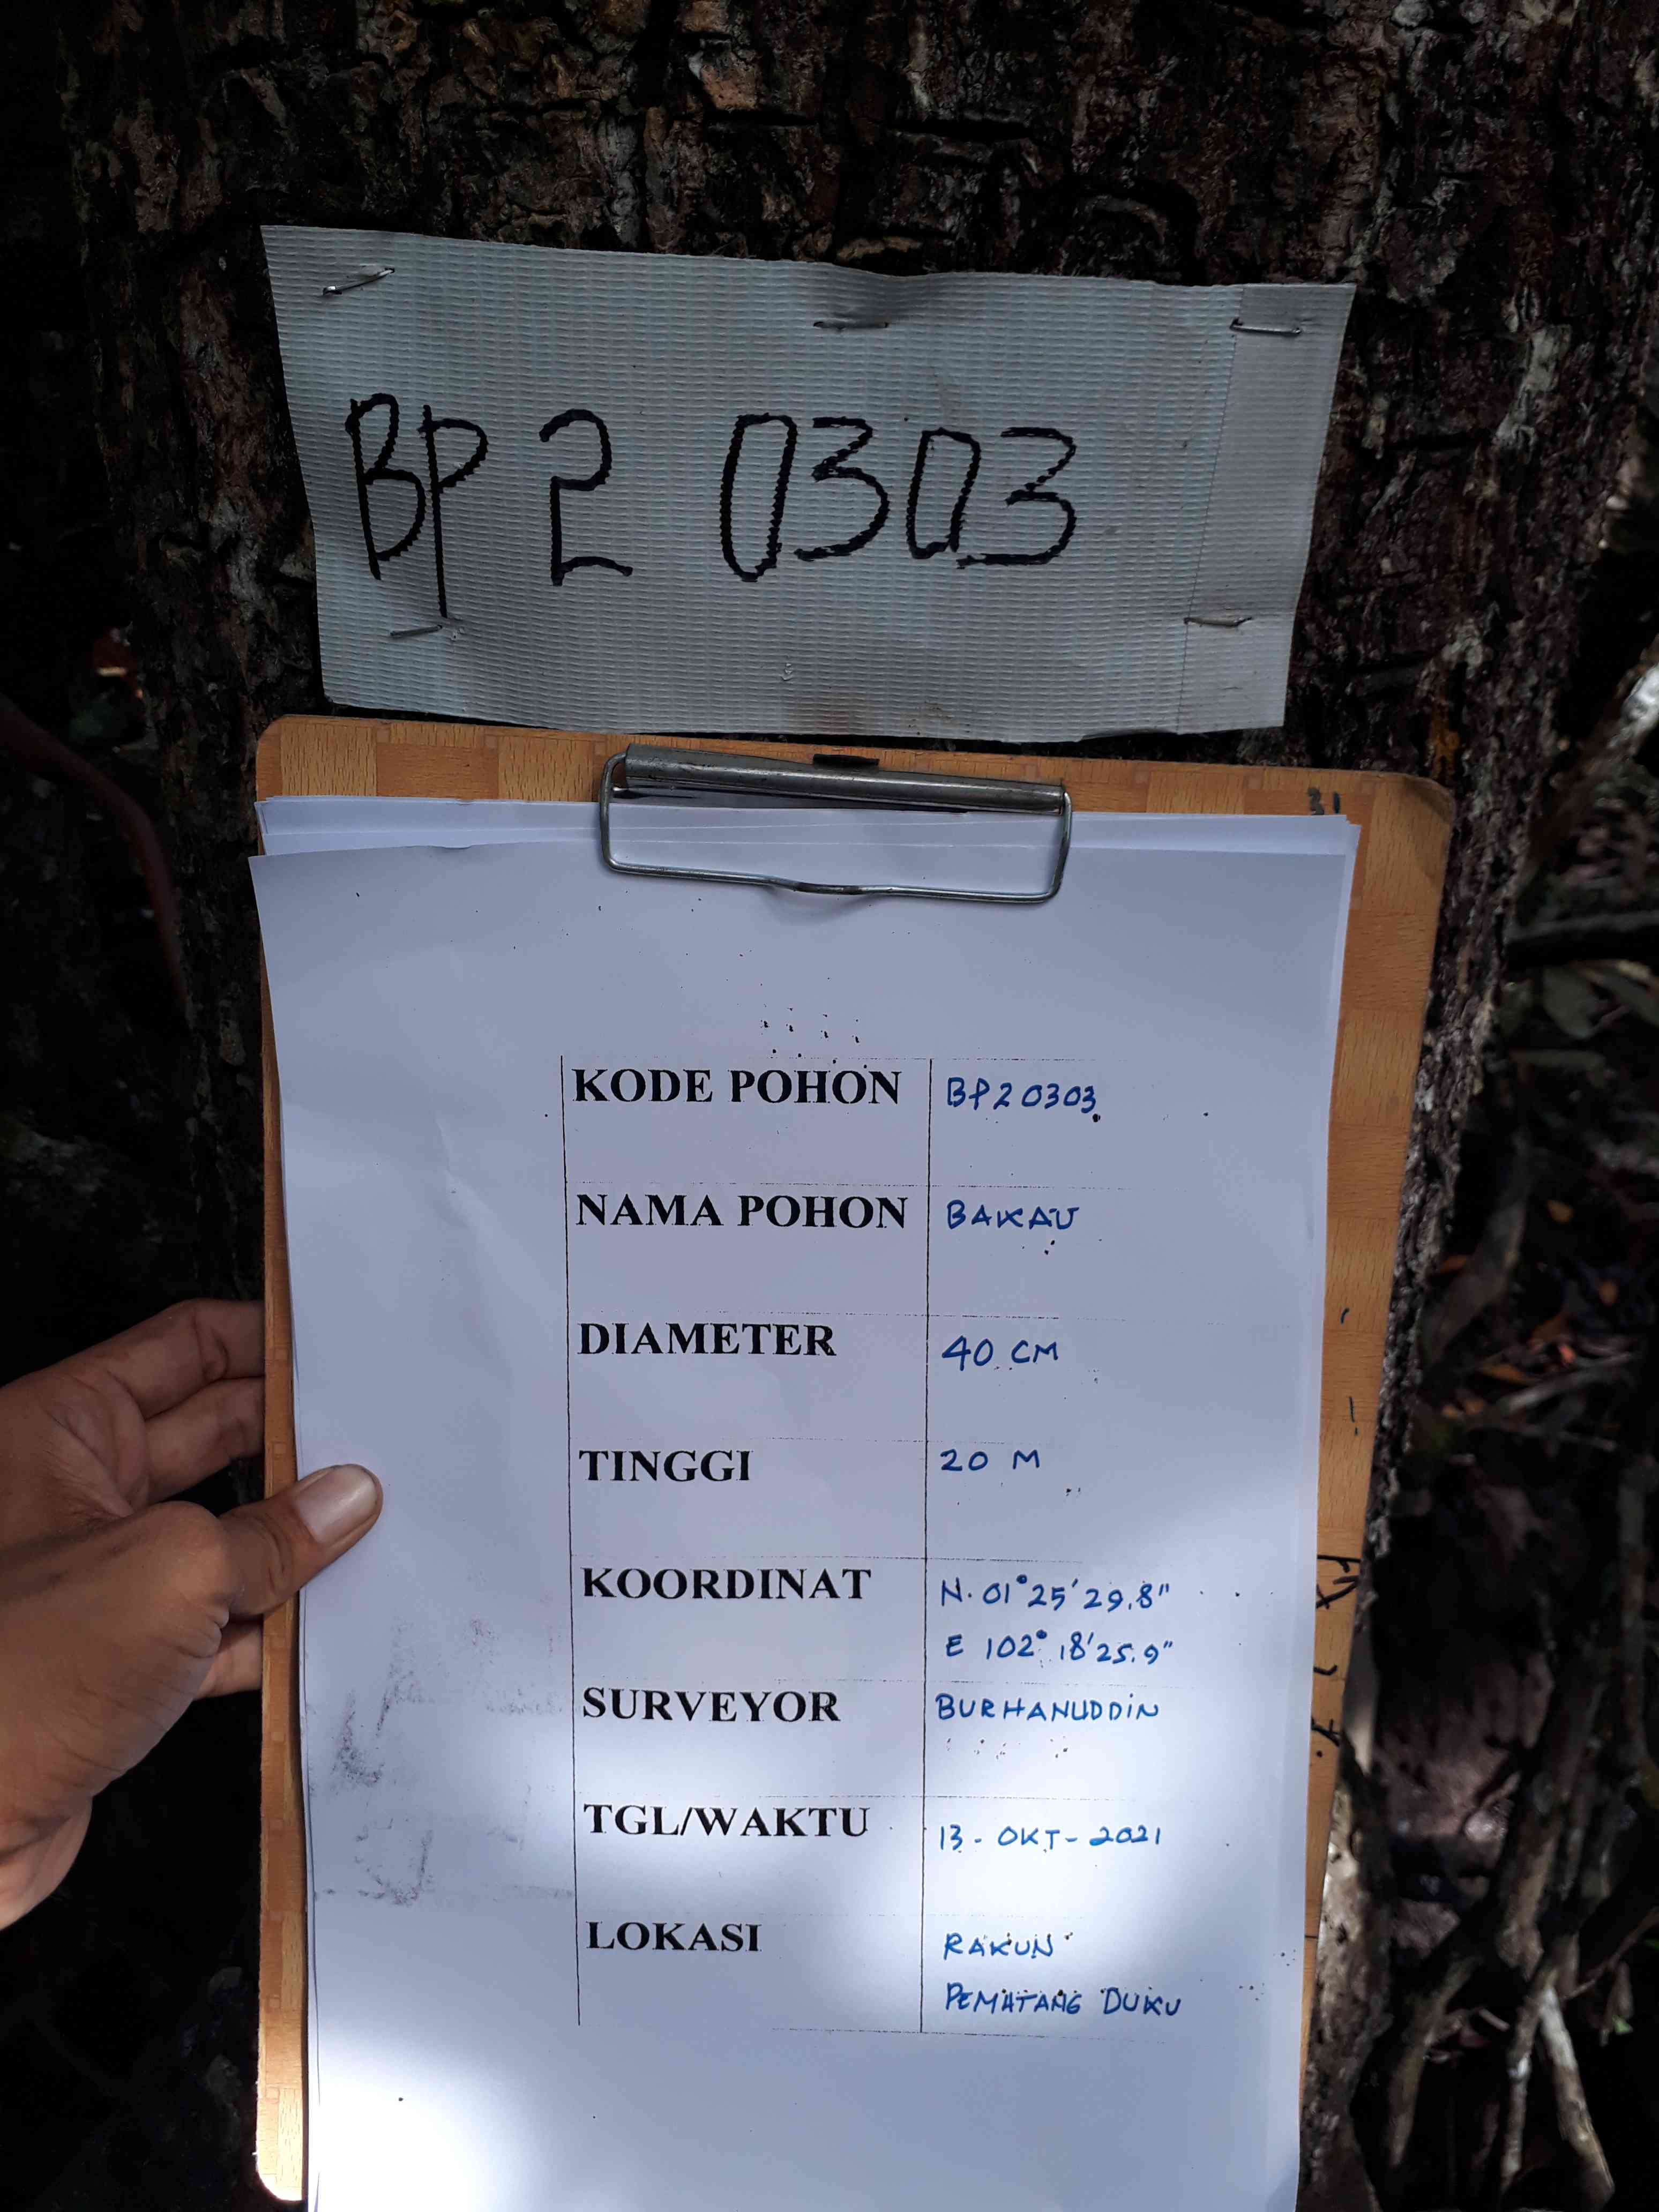 BP 2 0303
31
KODE POHON BP2 0303
NAMA POHON BAKAU
DIAMETER 40 CM
TINGGI 20 M
KOORDINAT N. 01° 25' 29,8"
E 102° 18' 25.9"
SURVEYOR BURHANUDDIN
TGL/WAKTU 13 - OKT - 2021
LOKASI RAKUN
PEMATANG DUKU